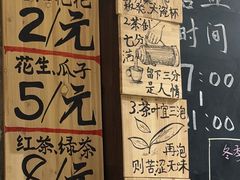 2/元
花生、瓜子
5/元
红茶、绿茶
8/元
2.茶倒
七分
满
留下三分
是人情
3.茶叶宜三泡
再泡
则苦涩无味
时间
7:00
1:00
冬季